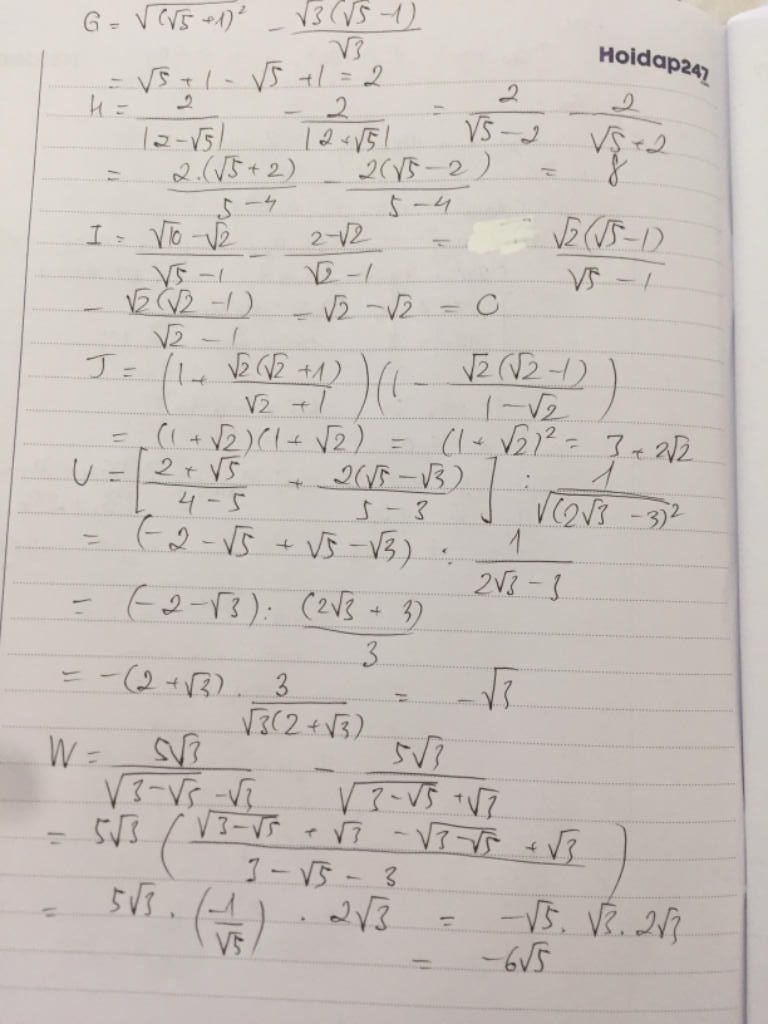 G = √(√5 + 1)² - √3(√5 - 1)/√3
Hoidap247
= √5 + 1 - √5 + 1 = 2
H = 2/|2 - √5| - 2/|2 + √5| = 2/(√5 - 2) - 2/(√5 + 2)
= 2.(√5 + 2)/(5 - 4) - 2(√5 - 2)/(5 - 4) = 8
I = (√10 - √2)/(√5 - 1) - (2 - √2)/(√2 - 1) = √2(√5 - 1)/(√5 - 1)
- √2(√2 - 1)/(√2 - 1) = √2 - √2 = 0
J = (1 + √2(√2 + 1)/(√2 + 1))(1 - √2(√2 - 1)/(1 - √2))
= (1 + √2)(1 + √2) = (1 + √2)² = 3 + 2√2
U = [(2 + √5)/(4 - 5) + 2(√5 - √3)/(5 - 3)] : 1/√(2√3 - 3)²
= (-2 - √5 + √5 - √3) : 1/(2√3 - 3)
= (-2 - √3) : (2√3 + 3)/3
= -(2 + √3) . 3/(√3(2 + √3)) = -√3
W = 5√3/(√(3 - √5) - √3) - 5√3/(√(3 - √5) + √3)
= 5√3 ((√(3 - √5) + √3 - √(3 - √5) + √3)/(3 - √5 - 3))
= 5√3 . (-1/√5) . 2√3 = -√5 . √3 . 2√3
= -6√5